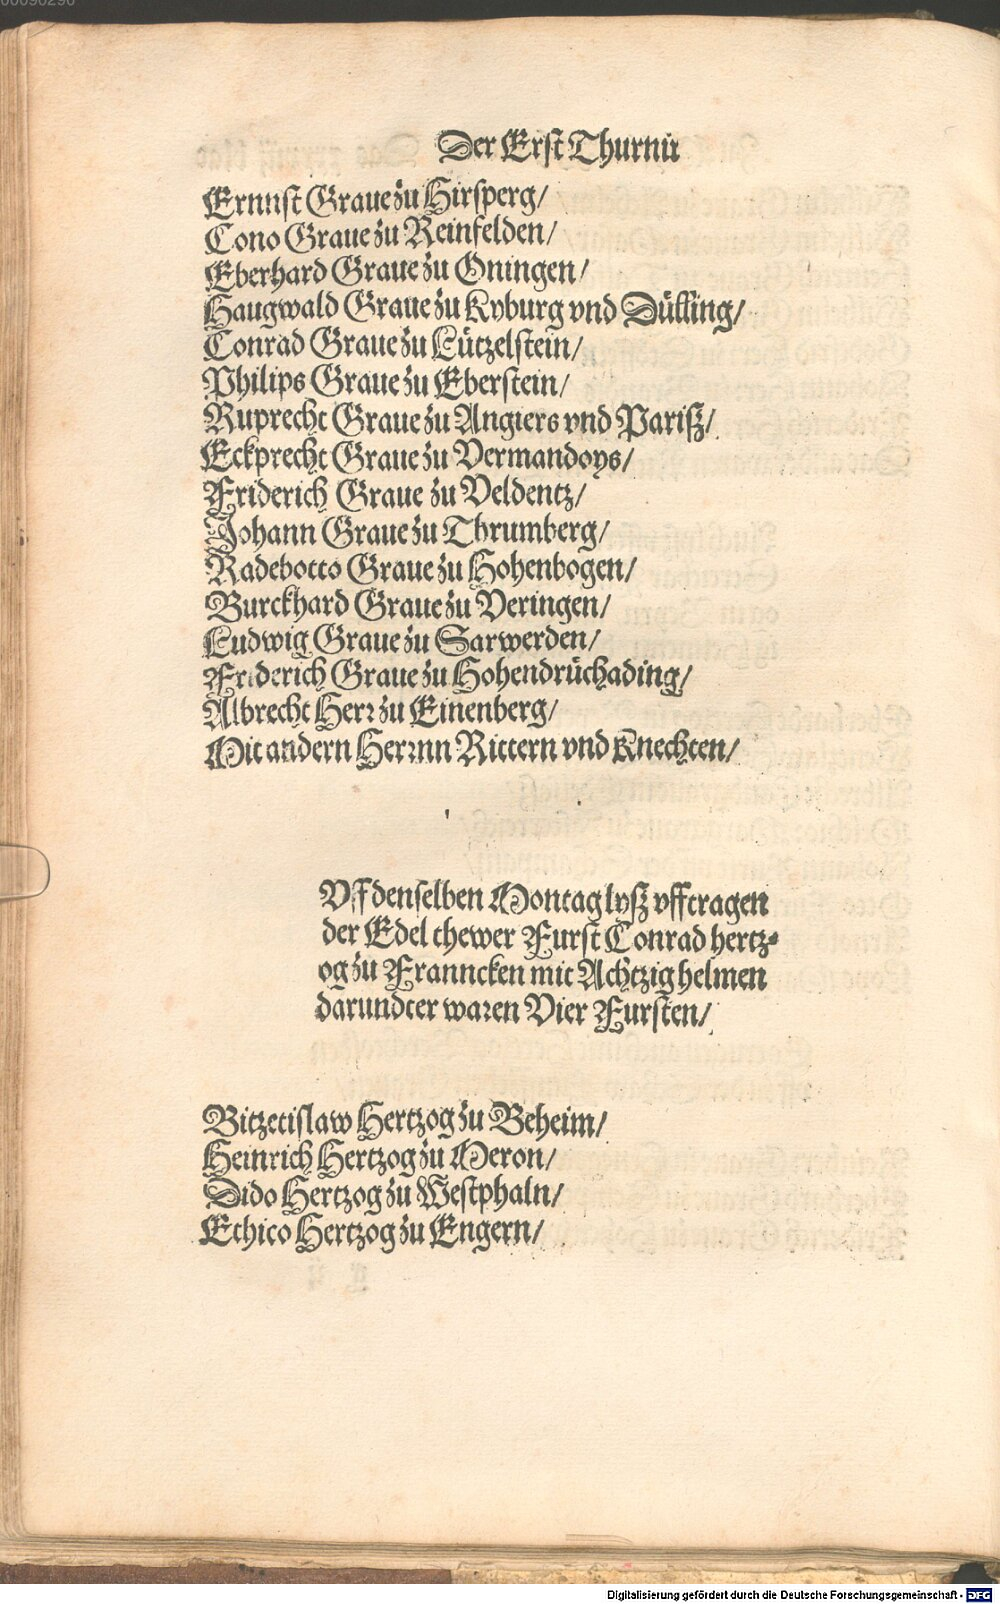 00090296
Der Erst Thurnir
Ernnst Graue zu Hirsperg/
Cono Graue zu Reinfelden/
Eberhard Graue zu Oningen/
Haugwald Graue zu Kyburg vnd Dülling/
Conrad Graue zu Lützelstein/
Philips Graue zu Eberstein/
Ruprecht Graue zu Angiers vnd Parisz/
Eckprecht Graue zu Vermandoys/
Friderich Graue zu Veldentz/
Johann Graue zu Thrumberg/
Radebotto Graue zu Hohenbogen/
Burckhard Graue zu Veringen/
Ludwig Graue zu Sarwerden/
Friderich Graue zu Hohendrüchading/
Albrecht Herr zu Einenberg/
Mit andern Herrnn Rittern vnd Knechten/
Vff denselben Montag lysz vfftragen
der Edel thewer Furst Conrad hertz⸗
og zu Franncken mit Achtzig helmen
darundter waren Vier Fursten/
Bitzetislaw Hertzog zu Beheim/
Heinrich Hertzog zu Meron/
Dido Hertzog zu Westphaln/
Ethico Hertzog zu Engern/
Digitalisierung gefördert durch die Deutsche Forschungsgemeinschaft - DFG